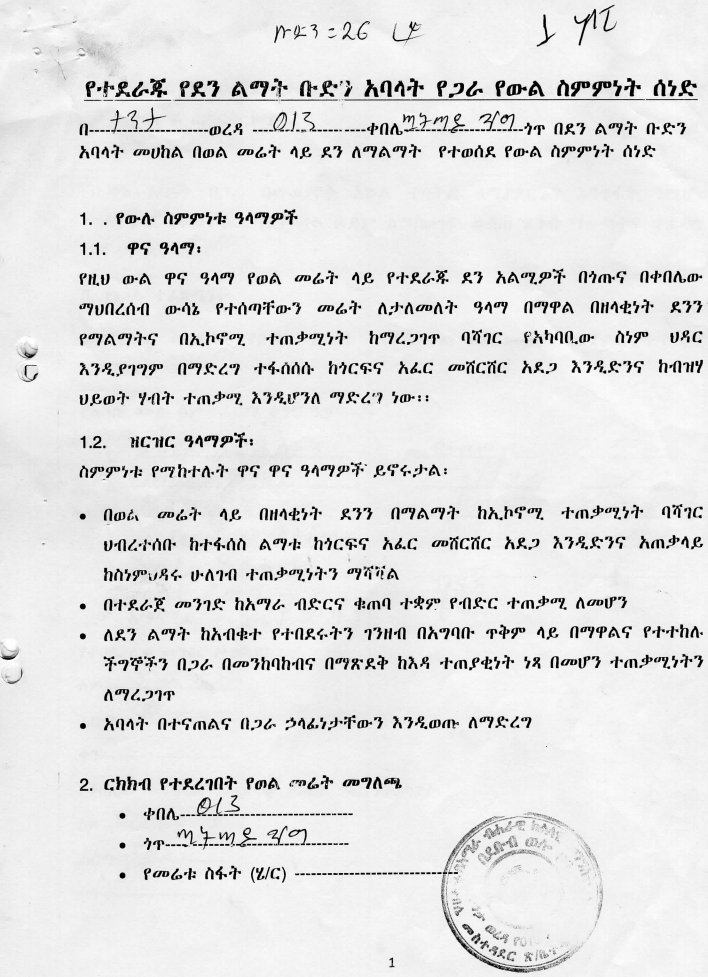 የተደራጁ የደን ልማት ቡድን አባላት የጋራ የውል ስምምነት ሰነድ
በ--------------------ወረዳ --013-----------ቀበሌ--------------------ጎጥ በደን ልማት ቡድን
አባላት መሀከል በወል መሬት ላይ ደን ለማልማት የተወሰደ የውል ስምምነት ሰነድ
1. . የውሉ ስምምነቱ ዓላማዎች
1.1. ዋና ዓላማ፡
የዚህ ውል ዋና ዓላማ የወል መሬት ላይ የተደራጁ ደን አልሚዎች በጎጡና በቀበሌው
ማህበረሰብ ውሳኔ የተሰጣቸውን መሬት ለታለመለት ዓላማ በማዋል በዘላቂነት ደንን
የማልማትና በኢኮኖሚ ተጠቃሚነት ከማረጋገጥ ባሻገር የአካባቢው ስነም ህዳር
እንዲያገግም በማድረግ ተፋሰሰሱ ከጎርፍና አፈር መሸርሸር አደጋ እንዲድንና ከብዝሃ
ህይወት ሃብት ተጠቃሚ እንዲሆንለ ማድረግ ነው፡፡
1.2. ዝርዝር ዓላማዎች፡
ስምምነቱ የሚከተሉት ዋና ዋና ዓላማዎች ይኖሩታል፡
• በወል መሬት ላይ በዘላቂነት ደንን በማልማት ከኢኮኖሚ ተጠቃሚነት ባሻገር
ህብረተሰቡ ከተፋሰስ ልማቱ ከጎርፍና አፈር መሸርሸር አደጋ እንዲድንና አጠቃላይ
ከስነምህዳሩ ሁለገብ ተጠቃሚነትን ማሻሻል
• በተደራጀ መንገድ ከአማራ ብድርና ቁጠባ ተቋም የብድር ተጠቃሚ ለመሆን
• ለደን ልማት ከአብቁተ የተበደሩትን ገንዘብ በአግባቡ ጥቅም ላይ በማዋልና የተተከሉ
ችግኞችን በጋራ በመንከባከብና በማጽደቅ ከእዳ ተጠያቂነት ነጻ በመሆን ተጠቃሚነትን
ለማረጋገጥ
• አባላት በተናጠልና በጋራ ኃላፊነታቸውን እንዲወጡ ለማድረግ
2. ርክክብ የተደረገበት የወል መሬት መግለጫ
• ቀበሌ--013--------------------
• ጎጥ------------------------------
• የመሬቱ ስፋት (ሄ/ር) --------------------------
1